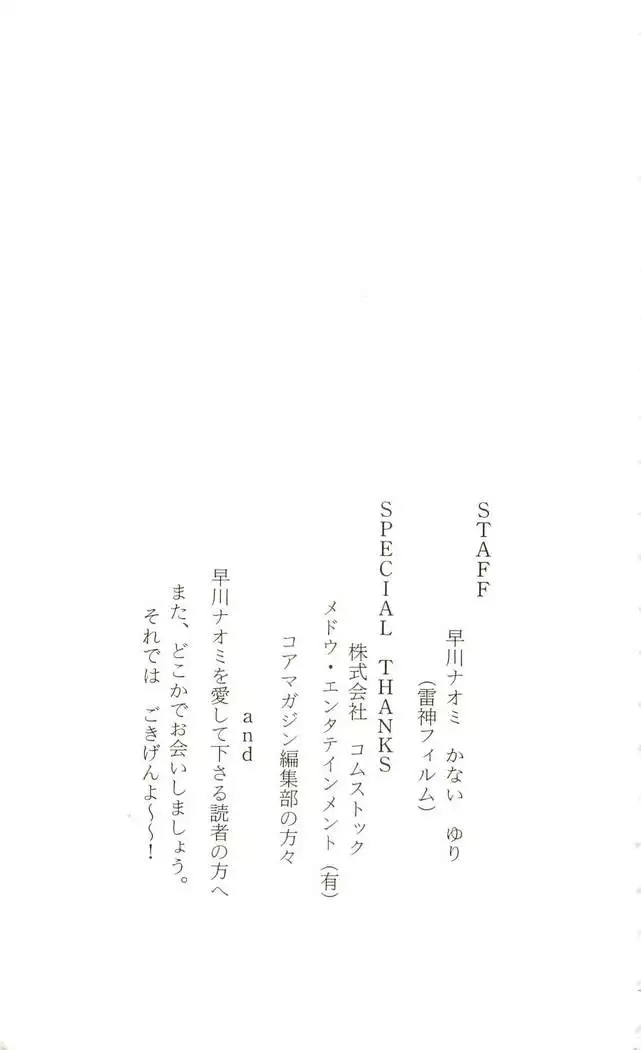 STAFF
早川ナオミ　かない　ゆり
（雷神フィルム）
SPECIAL　THANKS
株式会社　コムストック
メドウ・エンタテインメント（有）
コアマガジン編集部の方々
and
早川ナオミを愛して下さる読者の方へ
また、どこかでお会いしましょう。
それでは　ごきげんよ～～！